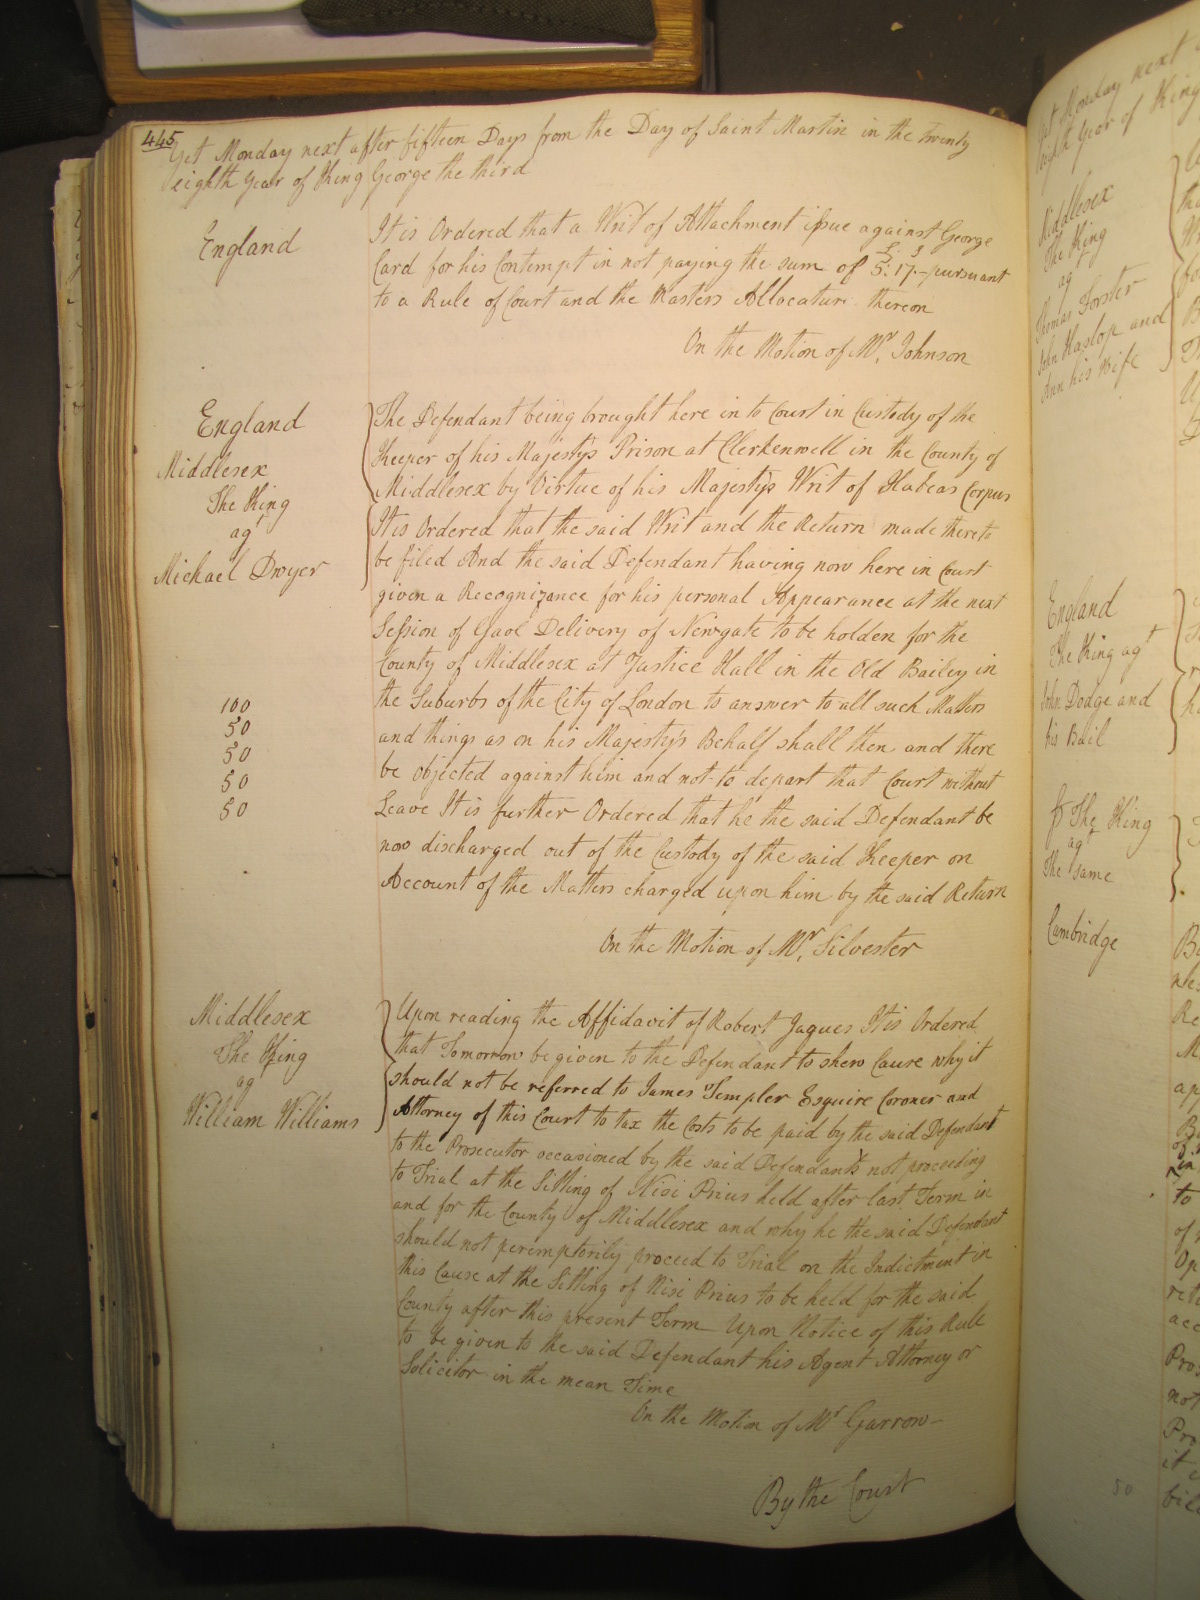 445
Yet Monday next after fifteen Days from the Day of Saint Martin in the twenty
eighth Year of King George the third
England
It is Ordered that a Writ of Attachment issue against George
Card for his Contempt in not paying the sum of £5: s17.- pursuant
to a Rule of Court and the Masters Allocatur thereon
On the Motion of Mr. Johnson
England
Middlesex
The King
agt
Michael Dwyer
The Defendant being brought here in to Court in Custody of the
Keeper of his Majesty's Prison at Clerkenwell in the County of
Middlesex by Virtue of his Majesty's Writ of Habeas Corpus
It is Ordered that the said Writ and the Return made thereto
be filed And the said Defendant having now here in Court
given a Recognizance for his personal Appearance at the next
Session of Gaol Delivery of Newgate to be holden for the
County of Middlesex at Justice Hall in the Old Bailey in
the Suburbs of the City of London to answer to all such Matters
and things as on his Majesty's Behalf shall then and there
be objected against him and not to depart that Court without
Leave It is further Ordered that he the said Defendant be
now discharged out of the Custody of the said Keeper on
Account of the Matters charged upon him by the said Return
100
50
50
50
50
On the Motion of Mr. Silvester
Middlesex
The King
agt
William Williams
Upon reading the Affidavit of Robert Jaques It is Ordered
that Tomorrow be given to the Defendant to shew Cause why it
should not be referred to James Templer Esquire Coroner and
Attorney of this Court to tax the Costs to be paid by the said Defendant
to the Prosecutor occasioned by the said Defendants not proceeding
to Trial at the Sitting of Nisi Prius held after last Term in
and for the County of Middlesex and why he the said Defendant
should not peremptorily proceed to Trial on the Indictment in
this Cause at the Sitting of Nisi Prius to be held for the said
County after this present Term Upon Notice of this Rule
to be given to the said Defendant his Agent Attorney or
Solicitor in the mean Time
On the Motion of Mr Garrow-
By the Court
Yet Monday next
eighth Year of King
Middlesex
The King
agt
Thomas Forster
John Haslop and
Ann his Wife
England
The King agt
John Dodge and
his Bail
The King
agt
The Same
Cambridge
50